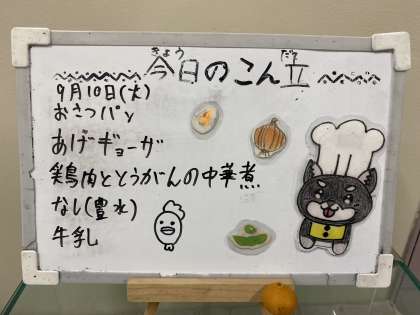 今日のこん立
きょう だて
9月10日(火)
おさつパン
あげギョーザ
鶏肉ととうがんの中華煮
なし(豊水)
牛乳